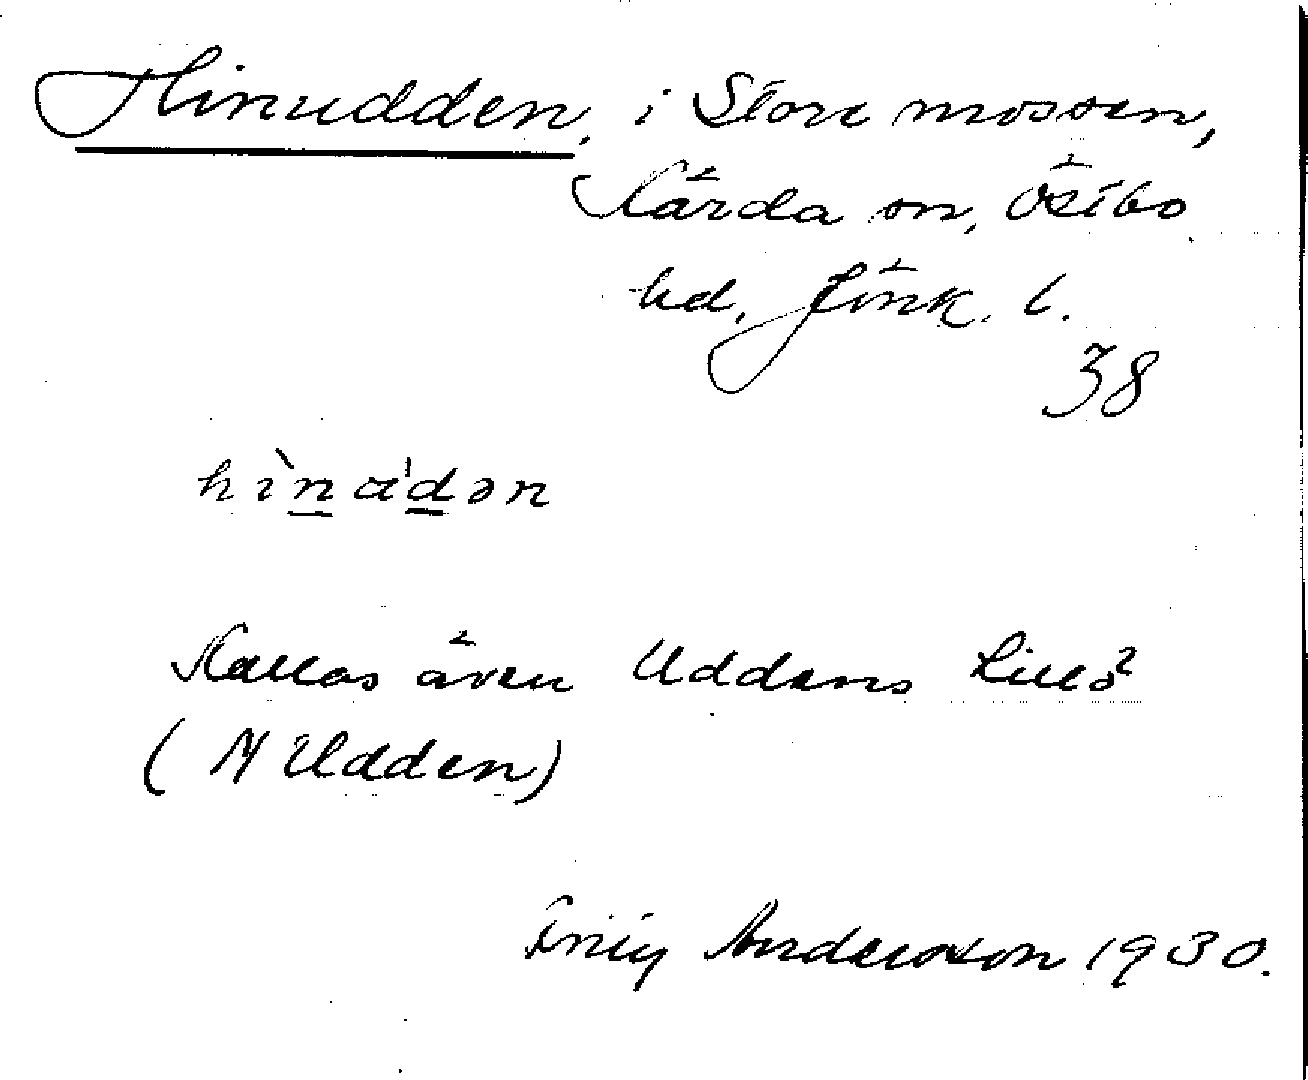 Hinudden, i Store mossen,
Kärda sn, Östbo
hd, Jönk. l.
38
hìnα'dən
Kallas även Uddens Lillö
(N Udden)
Emily Andersson 1930.